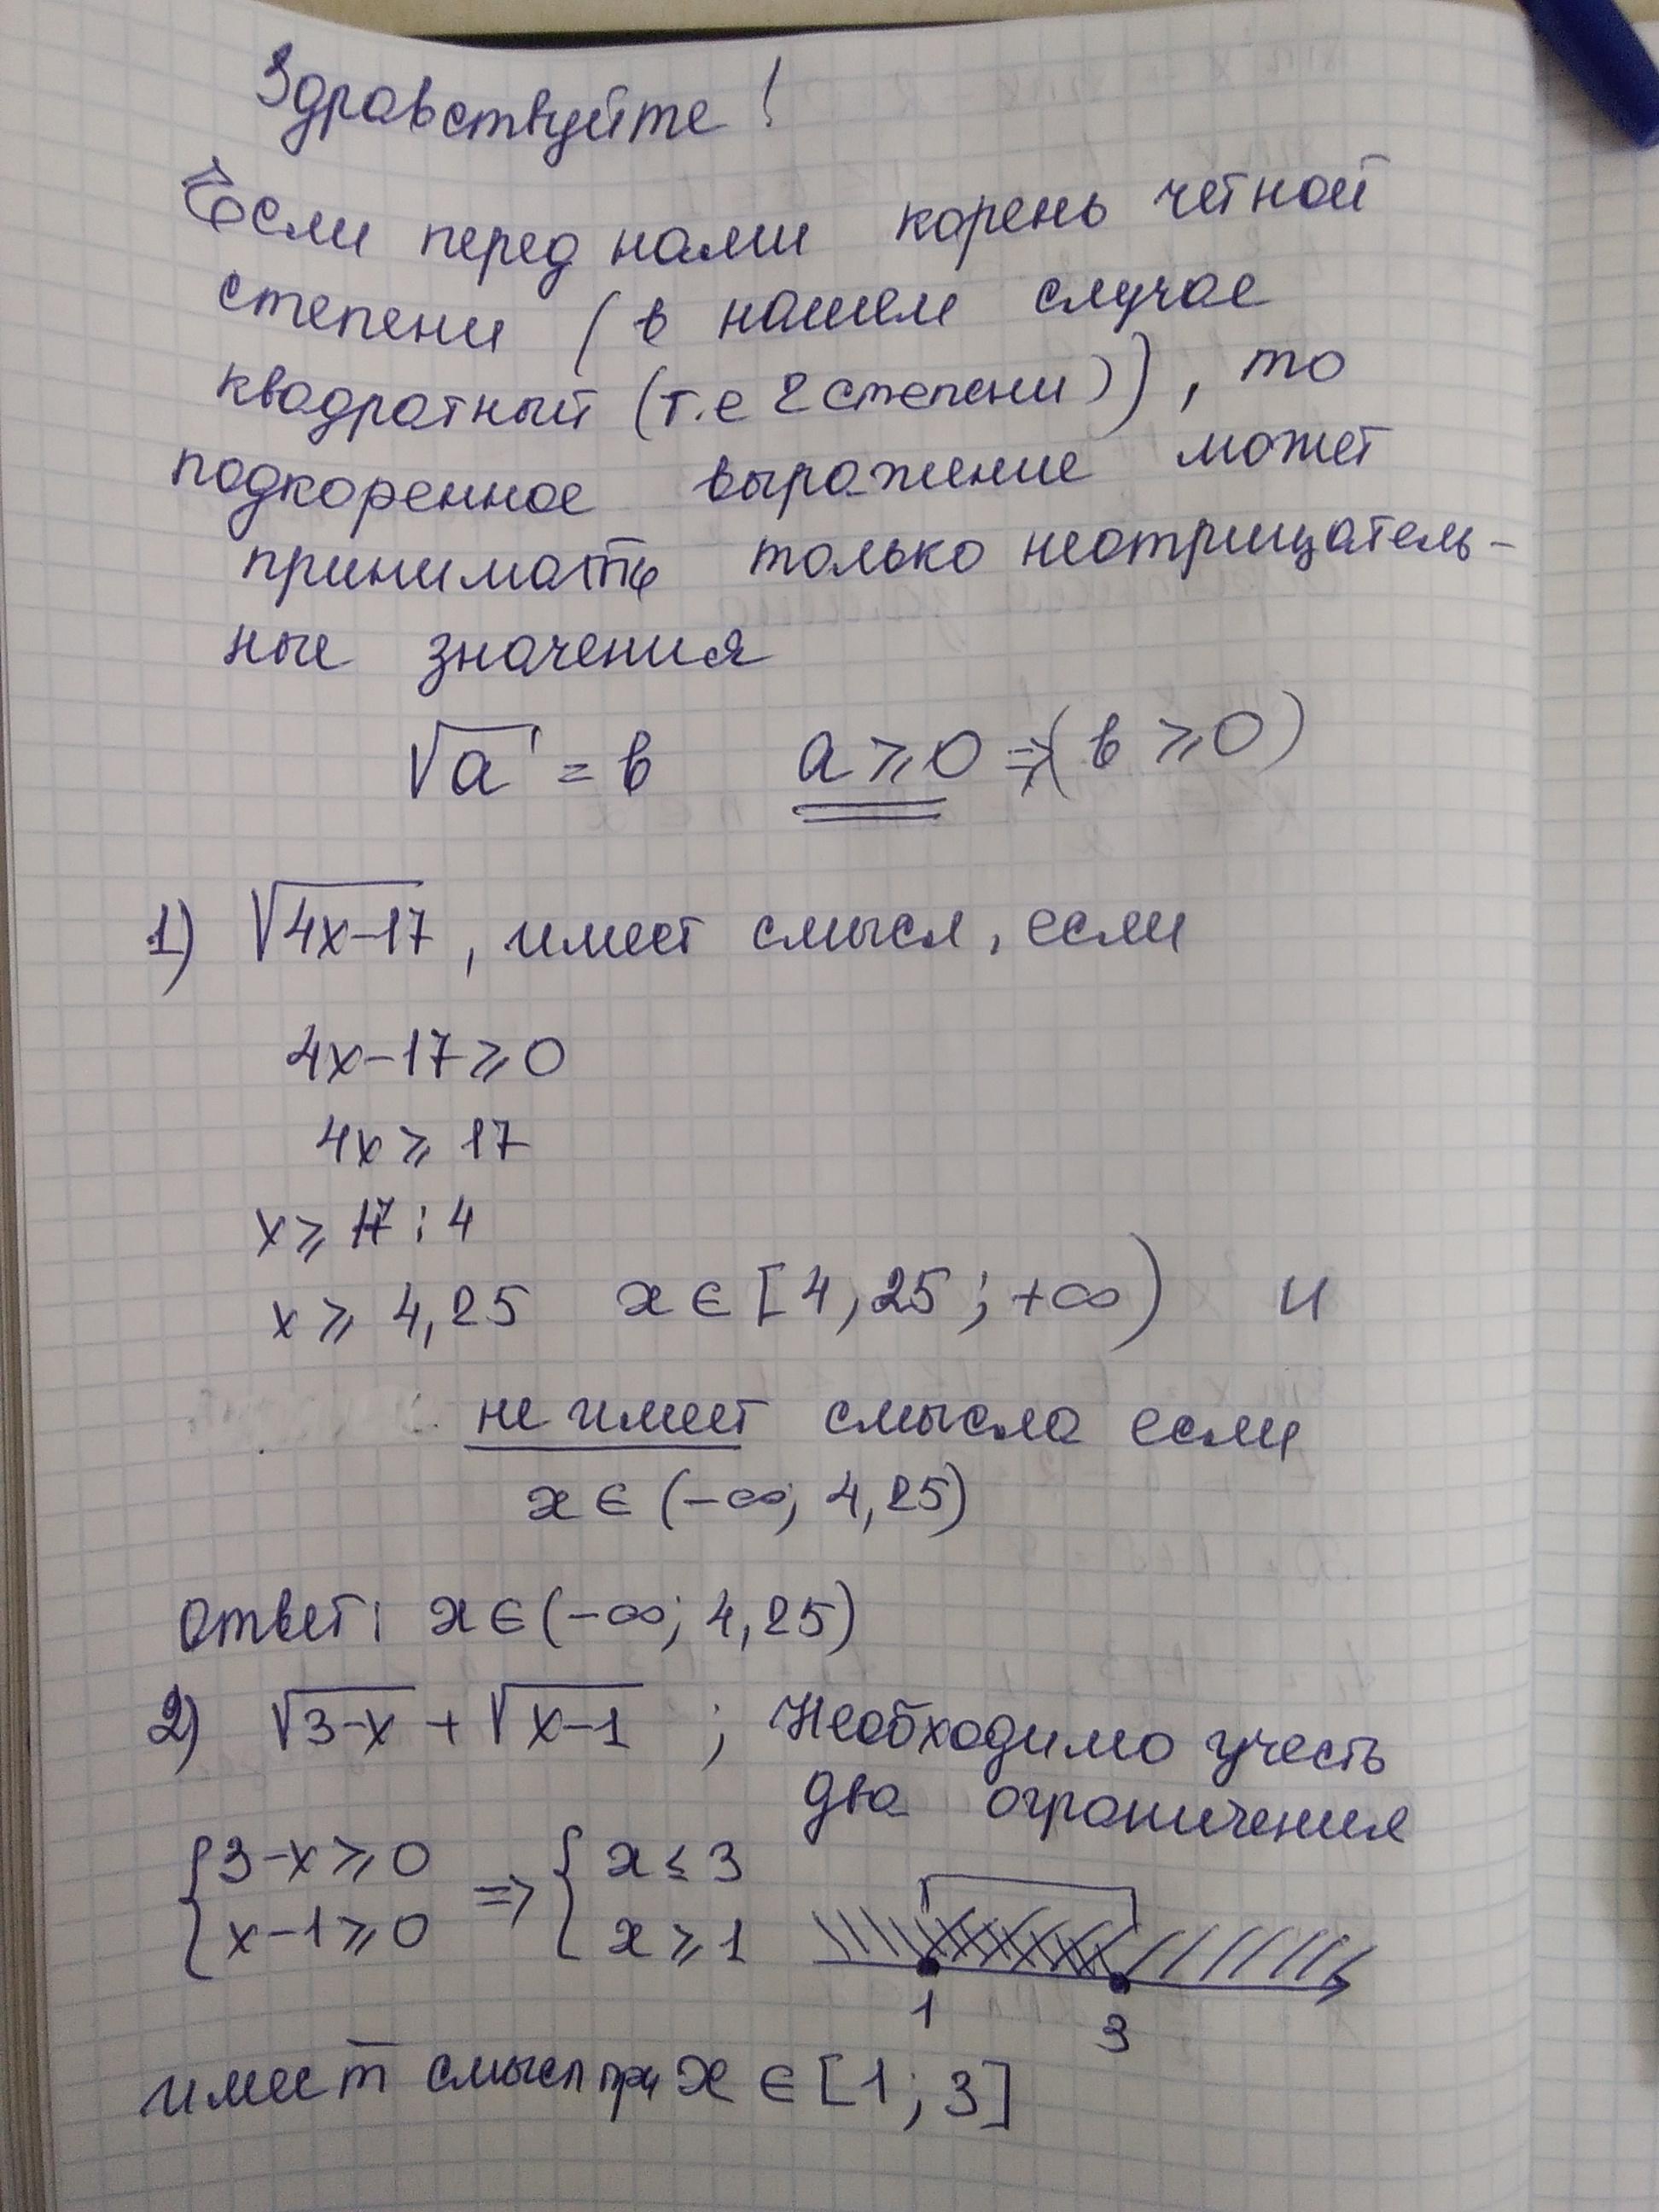 Здравствуйте!
Если перед нами корень четной
степени (в нашем случае
квадратный (т.е 2 степени)), то
подкоренное выражение может
принимать только неотрицатель-
ные значения
√a = в    a ⩾ 0 ⇒ (в ⩾ 0)
1) √4x-17, имеет смысл, если
4x-17 ⩾ 0
4x ⩾ 17
x ⩾ 17 : 4
x ⩾ 4,25    x ∈ [4,25; +∞)    и
не имеет смысла если
x ∈ (-∞; 4,25)
Ответ: x ∈ (-∞; 4,25)
2) √3-x + √x-1 ; Необходимо учесть
два ограничения
{3-x ⩾ 0 ⇒ {x ⩽ 3
{x-1 ⩾ 0    {x ⩾ 1
1    3
имеет смысл при x ∈ [1; 3]